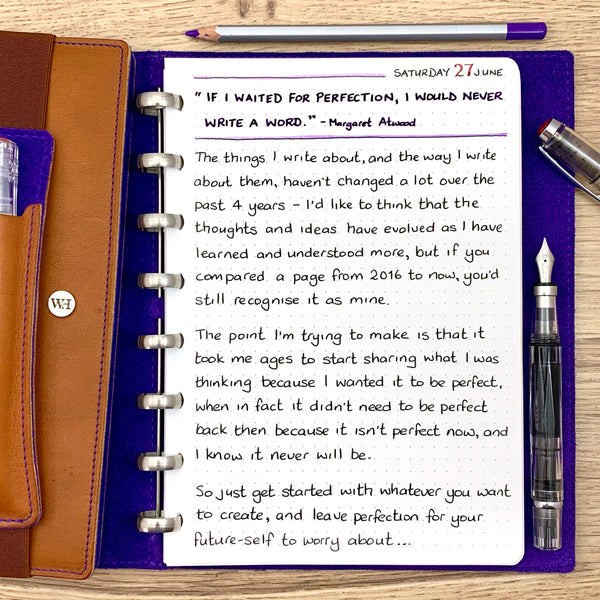 SATURDAY 27 JUNE
" IF I WAITED FOR PERFECTION, I WOULD NEVER
WRITE A WORD." - Margaret Atwood
The things I write about, and the way I write
about them, haven't changed a lot over the
past 4 years - I'd like to think that the
thoughts and ideas have evolved as I have
learned and understood more, but if you
compared a page from 2016 to now, you'd
still recognise it as mine.
The point I'm trying to make is that it
took me ages to start sharing what I was
thinking because I wanted it to be perfect,
when in fact it didn't need to be perfect
back then because it isn't perfect now, and
I know it never will be.
So just get started with whatever you want
to create, and leave perfection for your
future-self to worry about...
WH